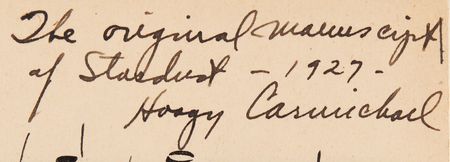 The original manuscript
of Stardust - 1927 -
Hoagy Carmichael